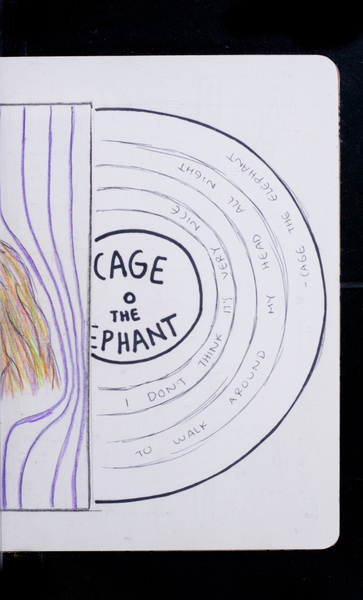 CAGE
THE
EPHANT
I DON'T THINK IT'S VERY NICE
TO WALK AROUND MY HEAD ALL NIGHT
- CAGE THE ELEPHANT